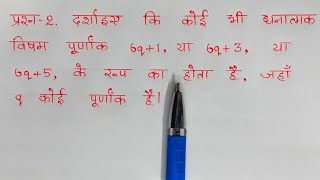 प्रश्न-2. दर्शाइए कि कोई भी धनात्मक
विषम पूर्णांक 6q+1, या 6q+3, या
6q+5, के रूप का होता है, जहाँ
q कोई पूर्णांक है।